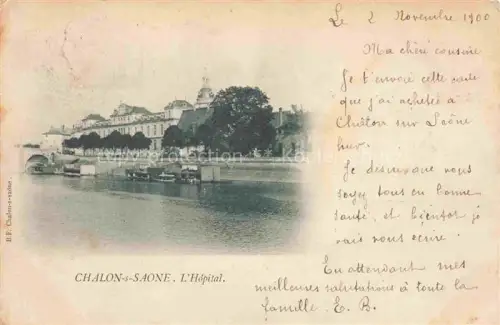 Le 2 Novembre 1900
Ma chère cousine
Je t'envoie cette carte
que j'ai acheteé à
Châlon sur Saône
hier.
Je desire que vous
soyez tous en bonne
santé, et bientot je
vais vous ecrire.
En attendant mes
meilleures salutations à toute la
famille E. B.
CHALON-s-SAONE. L'Hôpital.
B.F. Chalon-s-saône